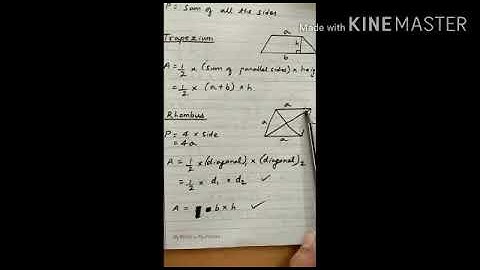 P = sum of all the sides
Made with KINEMASTER
Trapezium
a
h
b
A = 1/2 × (sum of parallel sides) × heig
= 1/2 × (a+b) × h
Rhombus
a
a
a
P = 4 × side
= 4a
A = 1/2 × (diagonal)1 × (diagonal)2
= 1/2 × d1 × d2 ✓
A = b × h ✓